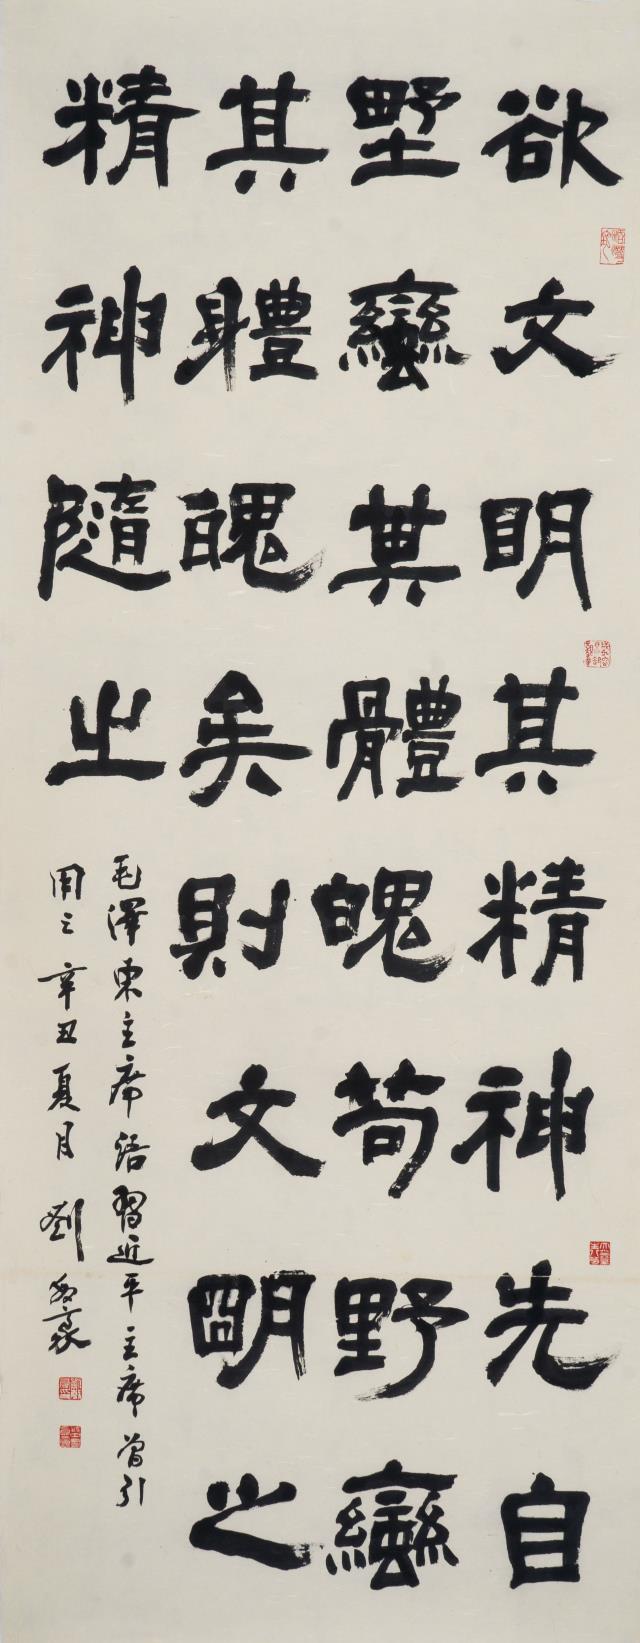 欲文眀其精神先自
墅蠻其體魄苟野蠻
其軆魄矣則文朙之
精神隨之
毛澤東主席語習近平主席曾引
用之辛丑夏月劉